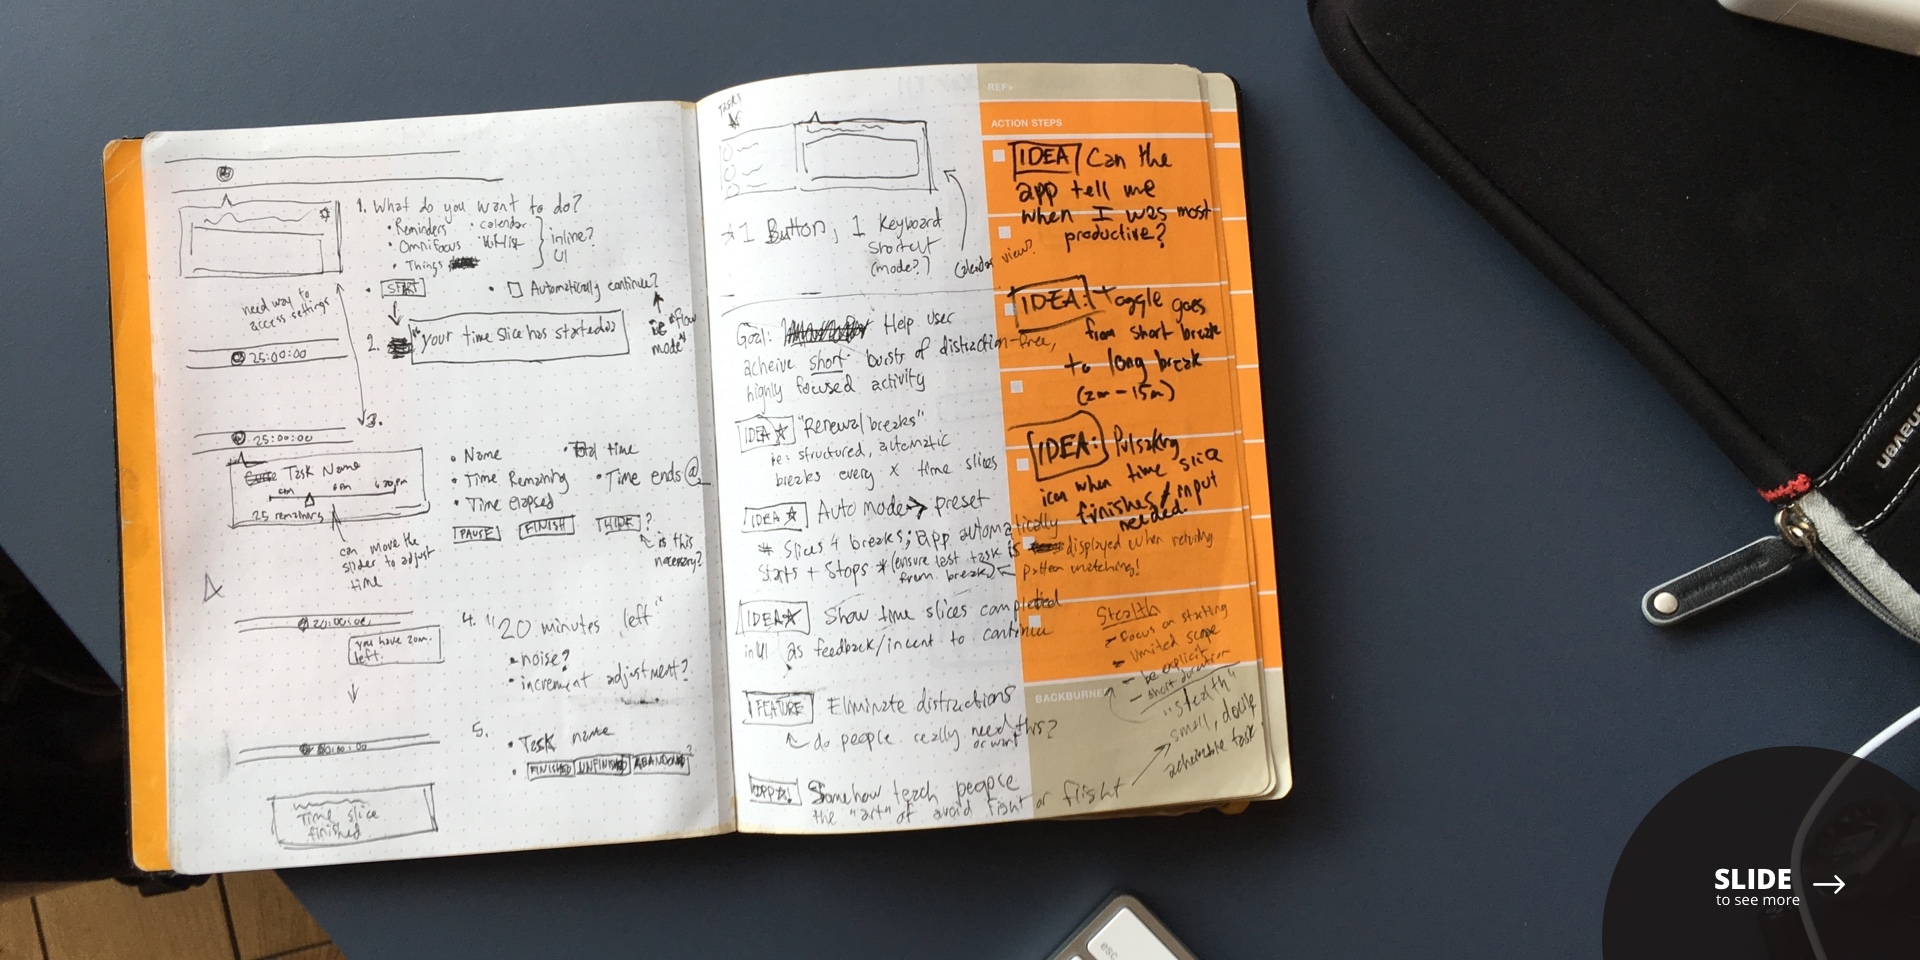 1. What do you want to do?
• Reminders • calendar
• Omnifocus
• Things
inline?
UI
• START
• Automatically continue?
ie "flow
mode"
need way to
access settings
2. "your time slice has started"
25:00:00
3.
25:00:00
Task Name
25 remaining
can move the
slider to adjust
time
• Name
• Total time
• Time Remaining
• Time ends @
• Time elapsed
PAUSE FINISH HIDE ?
is this
necessary?
4. "20 minutes left"
• noise?
• increment adjustment?
20:00:00
you have 20m.
left.
5.
• Task name
• FINISHED UNFINISHED ABANDONED?
Time slice
finished
Tasks
* 1 Button, 1 Keyboard
shortcut
(mode?)
Calendar view?
Goal: Help user
acheive short bursts of distraction-free,
highly focused activity
IDEA "Renewal breaks"
ie: structured, automatic
breaks every x time slices
IDEA Auto mode → preset
# slices 4 breaks; app automatically
starts + stops * (ensure last task is displayed when returning
from break) ← pattern matching!
IDEA Show time slices completed
in UI as feedback/incent to continue
FEATURE Eliminate distractions
do people really need this?
or want
Somehow teach people
the "art" of avoid fight or flight
REF>
ACTION STEPS
IDEA Can the
app tell me
when I was most
productive?
IDEA: Toggle goes
from short break
to long break
(2m-15m)
IDEA: Pulsating
icon when time slice
finishes/input
needed.
Stealth
- focus on starting
- limited scope
- be explicit
- short duration
"stealth"
small, docile
acheivable task
BACKBURNER
esc
SLIDE
to see more